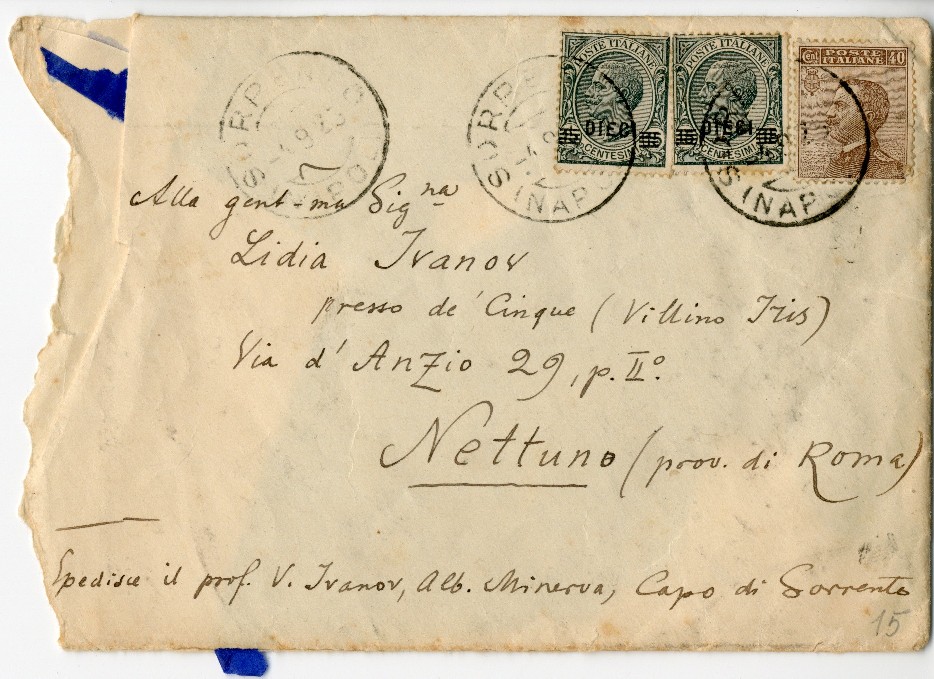 POSTE ITALIANE
DIECI
CENTESIMI
POSTE ITALIANE
DIECI
CENTESIMI
CENT 40
POSTE
ITALIANE
SORRENTO
NAPOLI
SORRE
NAPO
S
NAP
Alla gent-ma Signa
Lidia Ivanov
presso de' Cinque (Villino Iris)
Via d'Anzio 29, p. IIº.
Nettuno (prov. di Roma)
Spedisce il prof. V. Ivanov, Alb. Minerva, Capo di Sorrento
15